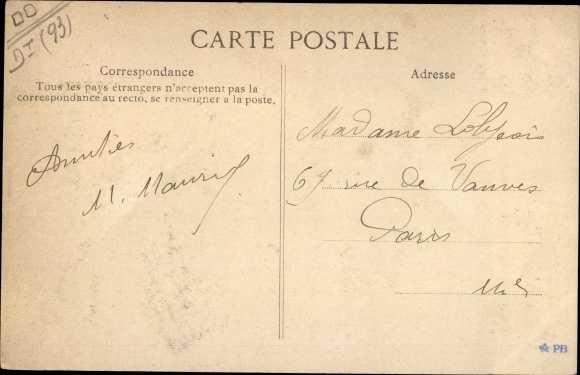 DI (93)
CARTE POSTALE
Correspondance
Tous les pays étrangers n'acceptent pas la
correspondance au recto, se renseigner a la poste.
Amitiés
M.
Adresse
Madame
67 rue de Vanves
Paris
PB